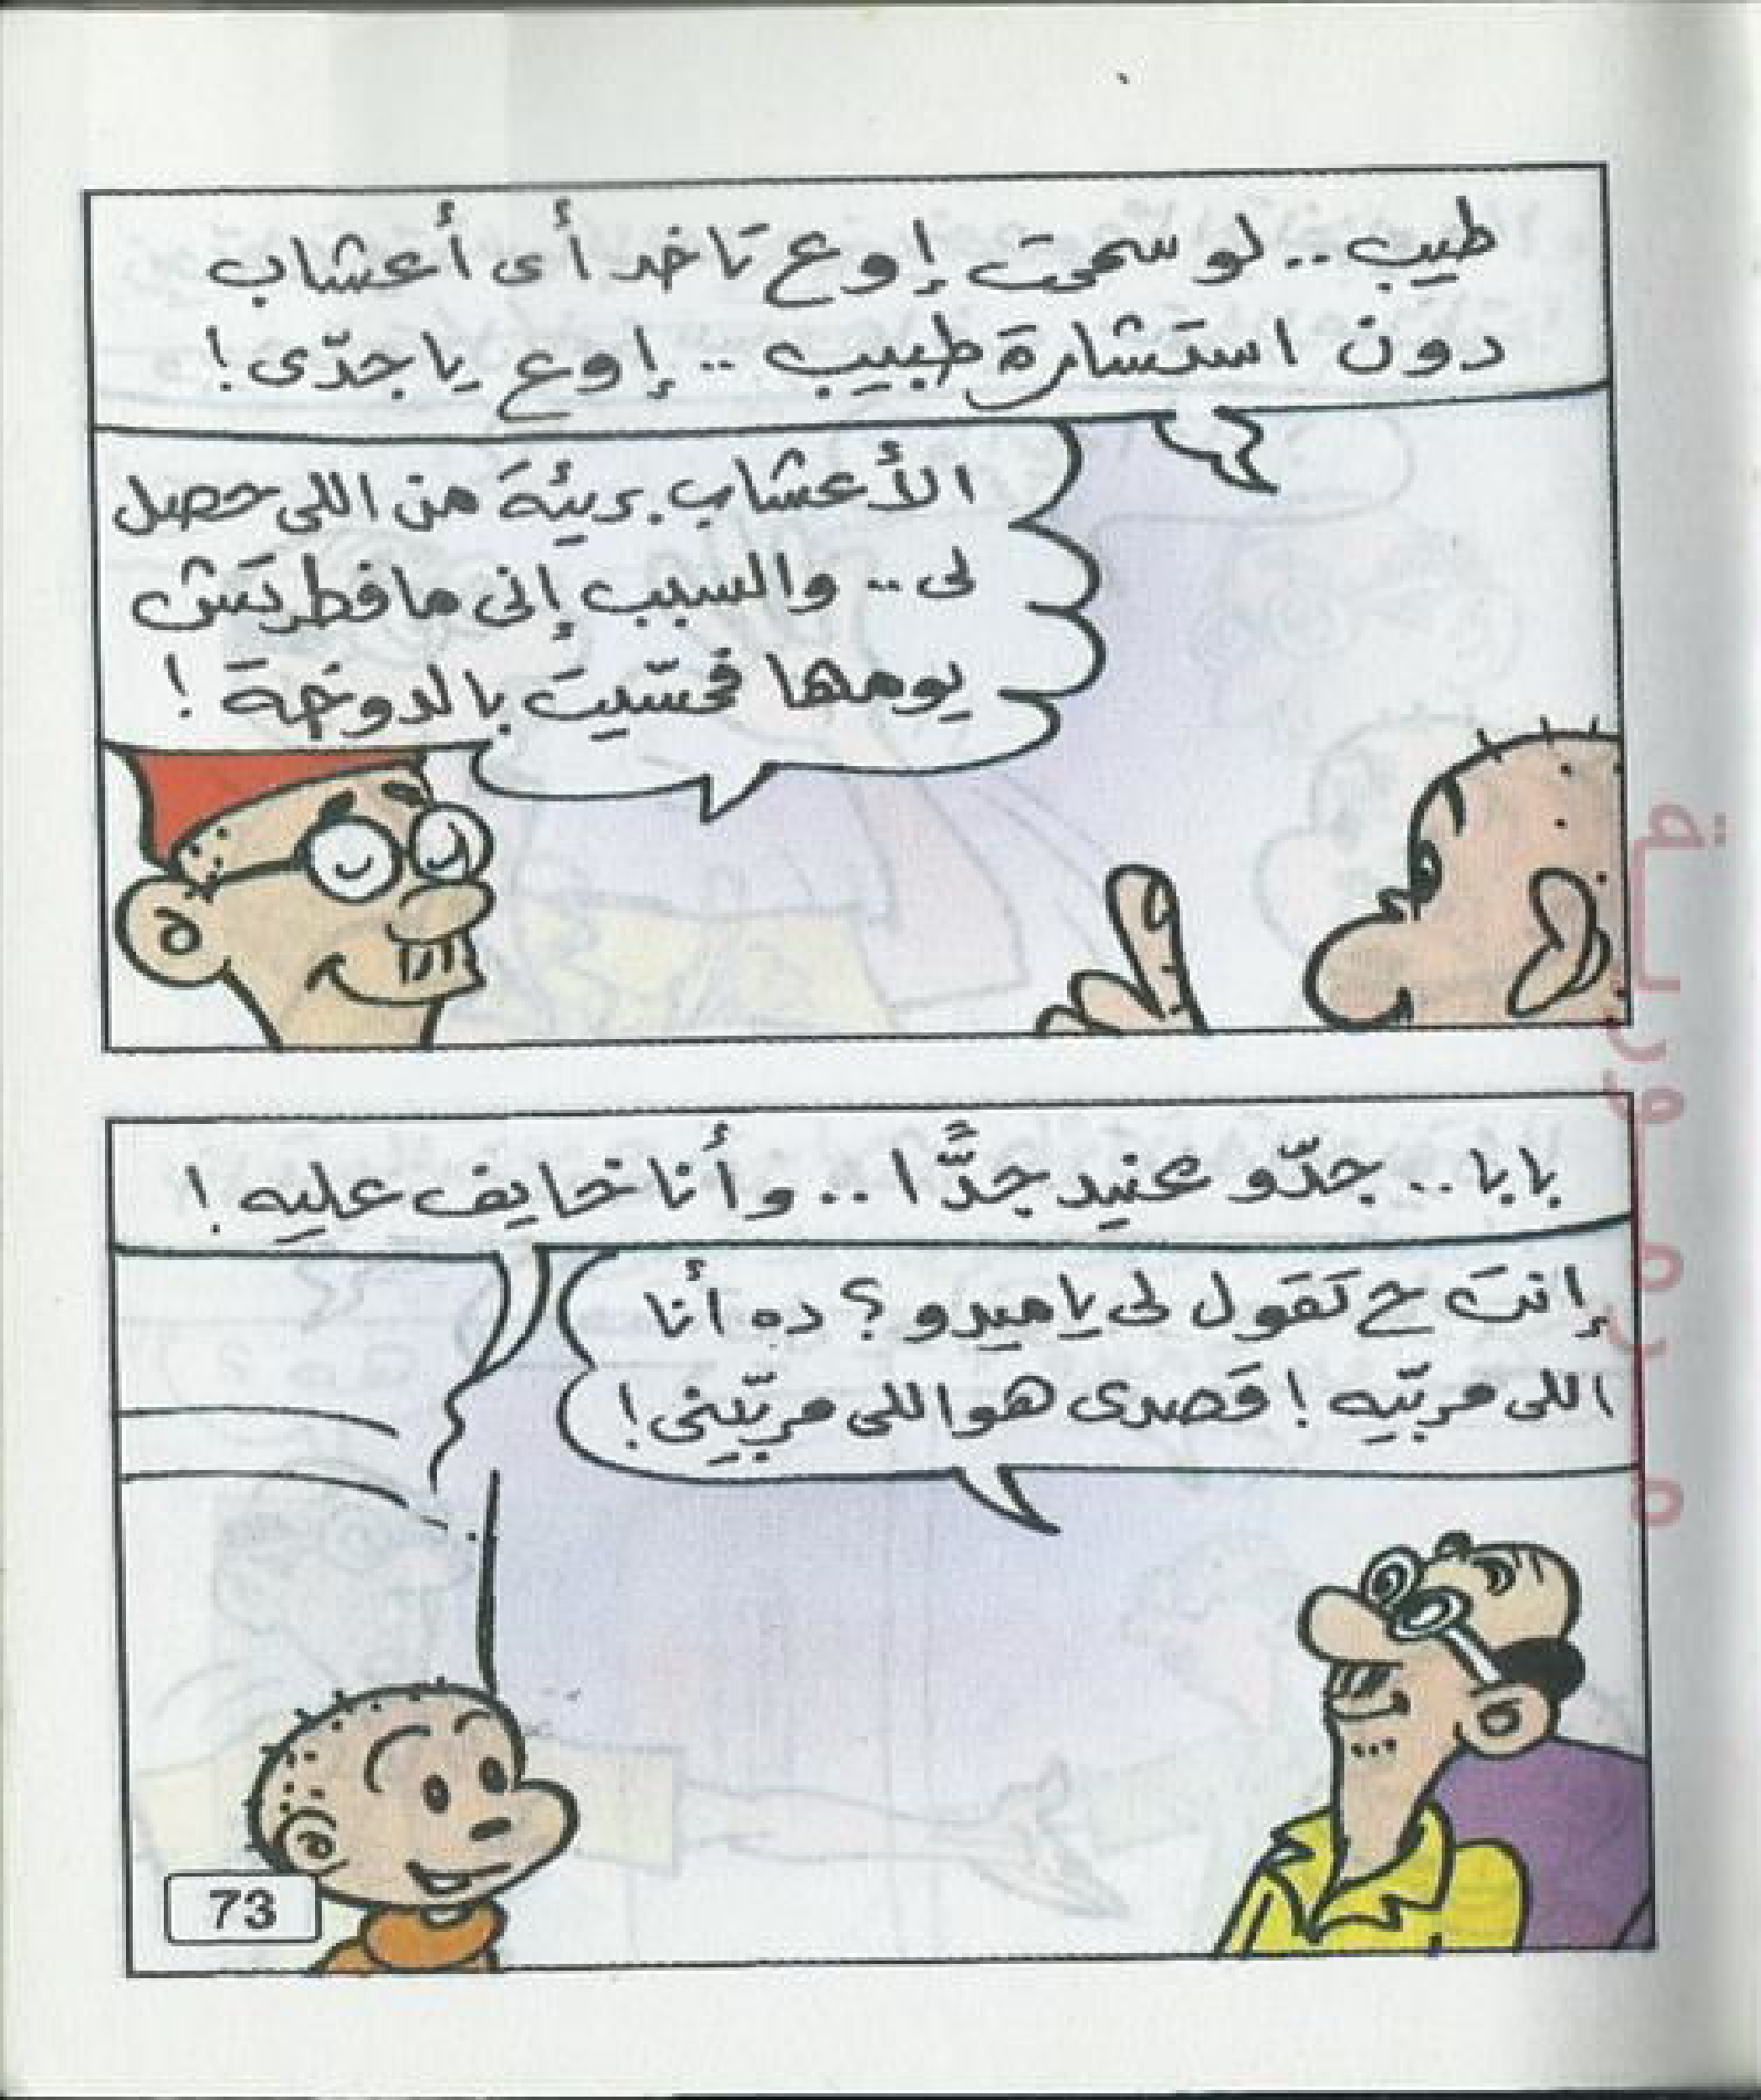 طيب.. لو سمحت إوع تاخد أى أعشاب
دون استشارة طبيب .. إوع يا جدّى!
الأعشاب بريئة من اللى حصل
لى.. والسبب إنى مافطرتش
يومها فحسّيت بالدوخة!
بابا.. جدّو عنيد جدًّا.. وأنا خايف عليه!
إنت ح تقول لى يا ميدو؟ ده أنا
اللى مربّيه! قصدى هو اللى مربّينى!
73